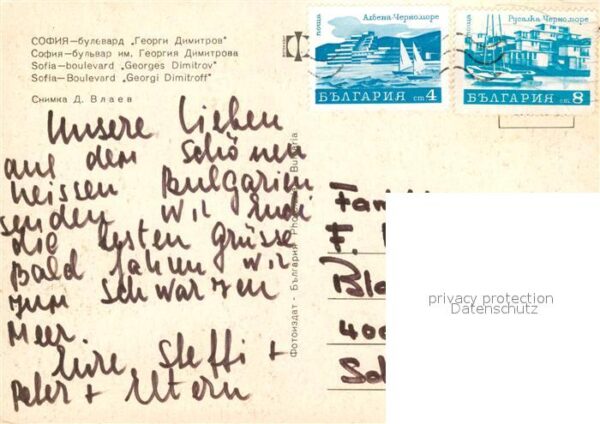 СОФИЯ—булевард „Георги Димитров"
София—бульвар им. Георгия Димитрова
Sofia—boulevard „Georges Dimitrov"
Sofia—Boulevard „Georgi Dimitroff"
Снимка Д. Влаев
поща
Албена-Черноморе
БЪЛГАРИЯ ст 4
поща
Русалка Черноморе
БЪЛГАРИЯ ст 8
Unsere Lieben
aus dem schönen
heissen Bulgarien
senden wir Eudi
die besten Grüsse
Bald fahren wir
zum schwarzen
Meer.
Eure Steffi +
Peter + Eltern
Фотоиздат - България Bulgaria
Fam
H.
400
privacy protection
Datenschutz